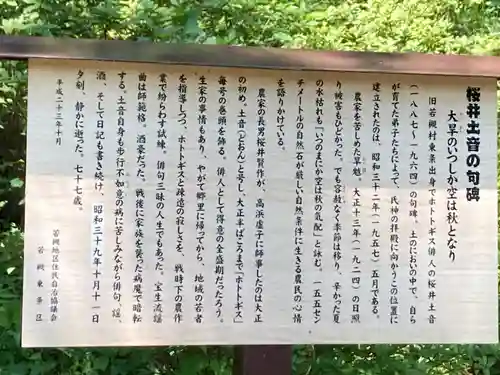 桜井土音の句碑
大旱のいつしか空は秋となり
旧若槻村東条出身でホトトギス俳人の桜井土音
(一八八七-一九六四)の句碑。土のにおいの中で、自ら
が育てた弟子たちによって、氏神の拝殿に向かうこの位置に
建立されたのは、昭和三十二年(一九五七)五月である。
農家を苦しめた旱魃。大正十三年(一九二四)の日照
り被害もひどかった。でも容赦なく季節は移り、辛かった夏
の水枯れも「いつのまにか空は秋の気配」と詠む。一五五セン
チメートルの自然石が厳しい自然条件に生きる農民の心情
を語りかけている。
農家の長男桜井賢作が、高浜虚子に師事したのは大正
の初め。土音(どおん)と号し、大正半ばころまで「ホトトギス」
毎号の巻頭を飾る。俳人として得意の全盛期だったろう。
生家の事情もあり、やがて郷里に帰ってから、地域の若者
を指導しつつ、ホトトギスと疎遠の寂しさを、戦時下の農作
業で紛らわす試練。俳句三昧の人生でもあった。宝生流謡
曲は師範格。酒豪だった。戦後に家族を襲った病魔で暗転
する。土音自身も歩行不如意の病に苦しみながら俳句、謡、
酒、そして日記も書き続け、昭和三十九年十月十一日
夕刻、静かに逝った。七十七歳。
平成二十三年十月
若槻地区住民自治協議会
若槻東条区